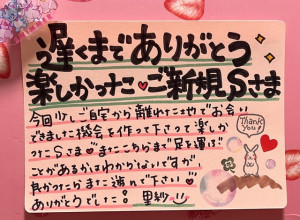 遅くまでありがとう
楽しかった♥ご新規Sさま
今回少しご自宅から離れた
お会い
できました機会を作って下さって楽しか
ったSさま♥またこちらまで足を運ぶ
ことがあるかはわからないですが、
見かつたらまた遊んで下さい
ありがとうでした! 里紗
Thank You!